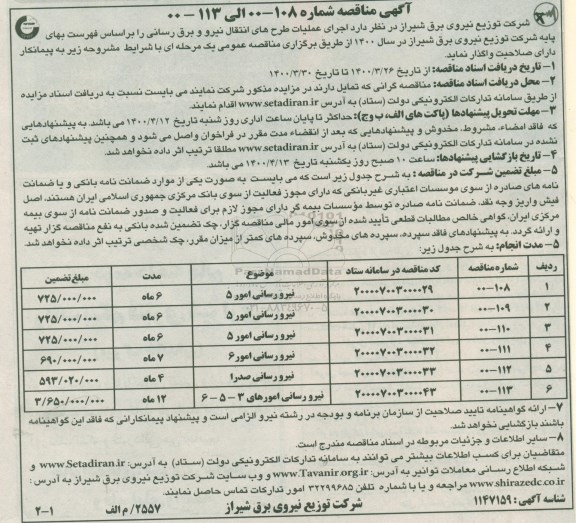 آگهی مناقصه شماره ۱۰۸-۰۰ الی ۱۱۳-۰۰
شرکت توزیع نیروی برق شیراز در نظر دارد اجرای عملیات طرح های انتقال نیرو و برق رسانی را براساس فهرست بهای
پایه شرکت توزیع نیروی برق شیراز در سال ۱۴۰۰ از طریق برگزاری مناقصه عمومی یک مرحله ای با شرایط مشروحه زیر به پیمانکار
دارای صلاحیت واگذار نماید.
۱- تاریخ دریافت اسناد مناقصه: از تاریخ ۱۴۰۰/۳/۲۶ تا تاریخ ۱۴۰۰/۳/۳۰
۲- محل دریافت اسناد مناقصه: مناقصه گرانی که تمایل دارند در مزایده مذکور شرکت نمایند می بایست نسبت به دریافت اسناد مزایده
از طریق سامانه تدارکات الکترونیکی دولت (ستاد) به آدرس www.setadiran.ir اقدام نمایند.
۳- مهلت تحویل پیشنهادها (پاکت های الف، ب وج): حداکثر تا پایان ساعت اداری روز شنبه تاریخ ۱۴۰۰/۴/۱۲ می باشد. به پیشنهادهایی
که فاقد امضاء، مشروط، مخدوش و پیشنهادهایی که بعد از انقضاء مدت مقرر در فراخوان واصل می شود و همچنین پیشنهادهای ثبت
نشده در سامانه تدارکات الکترونیکی دولت (ستاد) به آدرس www.setadiran.ir مطلقا ترتیب اثر داده نخواهد شد.
۴- تاریخ بازگشایی پیشنهادها: ساعت ۱۰ صبح روز یکشنبه تاریخ ۱۴۰۰/۴/۱۳ می باشد.
۵- مبلغ تضمین شرکت در مناقصه: به شرح جدول زیر است که می بایست به صورت یکی از موارد ضمانت نامه بانکی و یا ضمانت
نامه های صادره از سوی موسسات اعتباری غیربانکی که دارای مجوز فعالیت از سوی بانک مرکزی جمهوری اسلامی ایران هستند، اصل
فیش واریز وجه نقد، ضمانت نامه صادره توسط مؤسسات بیمه گر دارای مجوز لازم برای فعالیت و صدور ضمانت نامه از سوی بیمه
مرکزی ایران، گواهی خالص مطالبات قطعی تأیید شده از سوی امور مالی مناقصه گزار، چک تضمین شده بانکی به نفع مناقصه گزار تهیه
و ارائه گردد. به پیشنهادهای فاقد سپرده، سپرده های مخدوش، سپرده های کمتر از میزان مقرر، چک شخصی ترتیب اثر داده نخواهد شد.
۵- مدت انجام: به شرح جدول زیر:
ردیف شماره مناقصه کد مناقصه در سامانه ستاد موضوع مدت مبلغ تضمین
۱ ۱۰۸-۰۰ ۲۰۰۰۰۷۰۰۳۰۰۰۰۲۹ نیرو رسانی امور ۵ ۶ ماه ۷۲۵/۰۰۰/۰۰۰
۲ ۱۰۹-۰۰ ۲۰۰۰۰۷۰۰۳۰۰۰۰۳۰ نیرو رسانی امور ۵ ۶ ماه ۷۲۵/۰۰۰/۰۰۰
۳ ۱۱۰-۰۰ ۲۰۰۰۰۷۰۰۳۰۰۰۰۳۱ نیرو رسانی امور ۵ ۶ ماه ۷۲۵/۰۰۰/۰۰۰
۴ ۱۱۱-۰۰ ۲۰۰۰۰۷۰۰۳۰۰۰۰۳۲ نیرو رسانی امور ۶ ۷ ماه ۶۹۰/۰۰۰/۰۰۰
۵ ۱۱۲-۰۰ ۲۰۰۰۰۷۰۰۳۰۰۰۰۳۳ نیرو رسانی صدرا ۴ ماه ۵۹۳/۰۲۰/۰۰۰
۶ ۱۱۳-۰۰ ۲۰۰۰۰۷۰۰۳۰۰۰۰۴۳ نیرو رسانی امورهای ۳ - ۵ - ۶ ۱۲ ماه ۳/۶۵۰/۰۰۰/۰۰۰
۷- ارائه گواهینامه تایید صلاحیت از سازمان برنامه و بودجه در رشته نیرو الزامی است و پیشنهاد پیمانکارانی که فاقد این گواهینامه
باشند بازگشایی نخواهد شد.
۸- سایر اطلاعات و جزئیات مربوطه در اسناد مناقصه مندرج است.
متقاضیان برای کسب اطلاعات بیشتر می توانند به سامانه تدارکات الکترونیکی دولت (ستاد) به آدرس: www.Setadiran.ir و
شبکه اطلاع رسانی معاملات توانیر به آدرس: www.Tavanir.org.ir و وب سایت شرکت توزیع نیروی برق شیراز به آدرس :
www.shirazedc.co.ir مراجعه و یا با شماره تلفن ۳۲۲۹۹۶۸۵ امور تدارکات تماس حاصل نمایند.
شناسه آگهی: ۱۱۴۷۱۵۹ شرکت توزیع نیروی برق شیراز ۲۵۵۷/ م الف ۲-۱